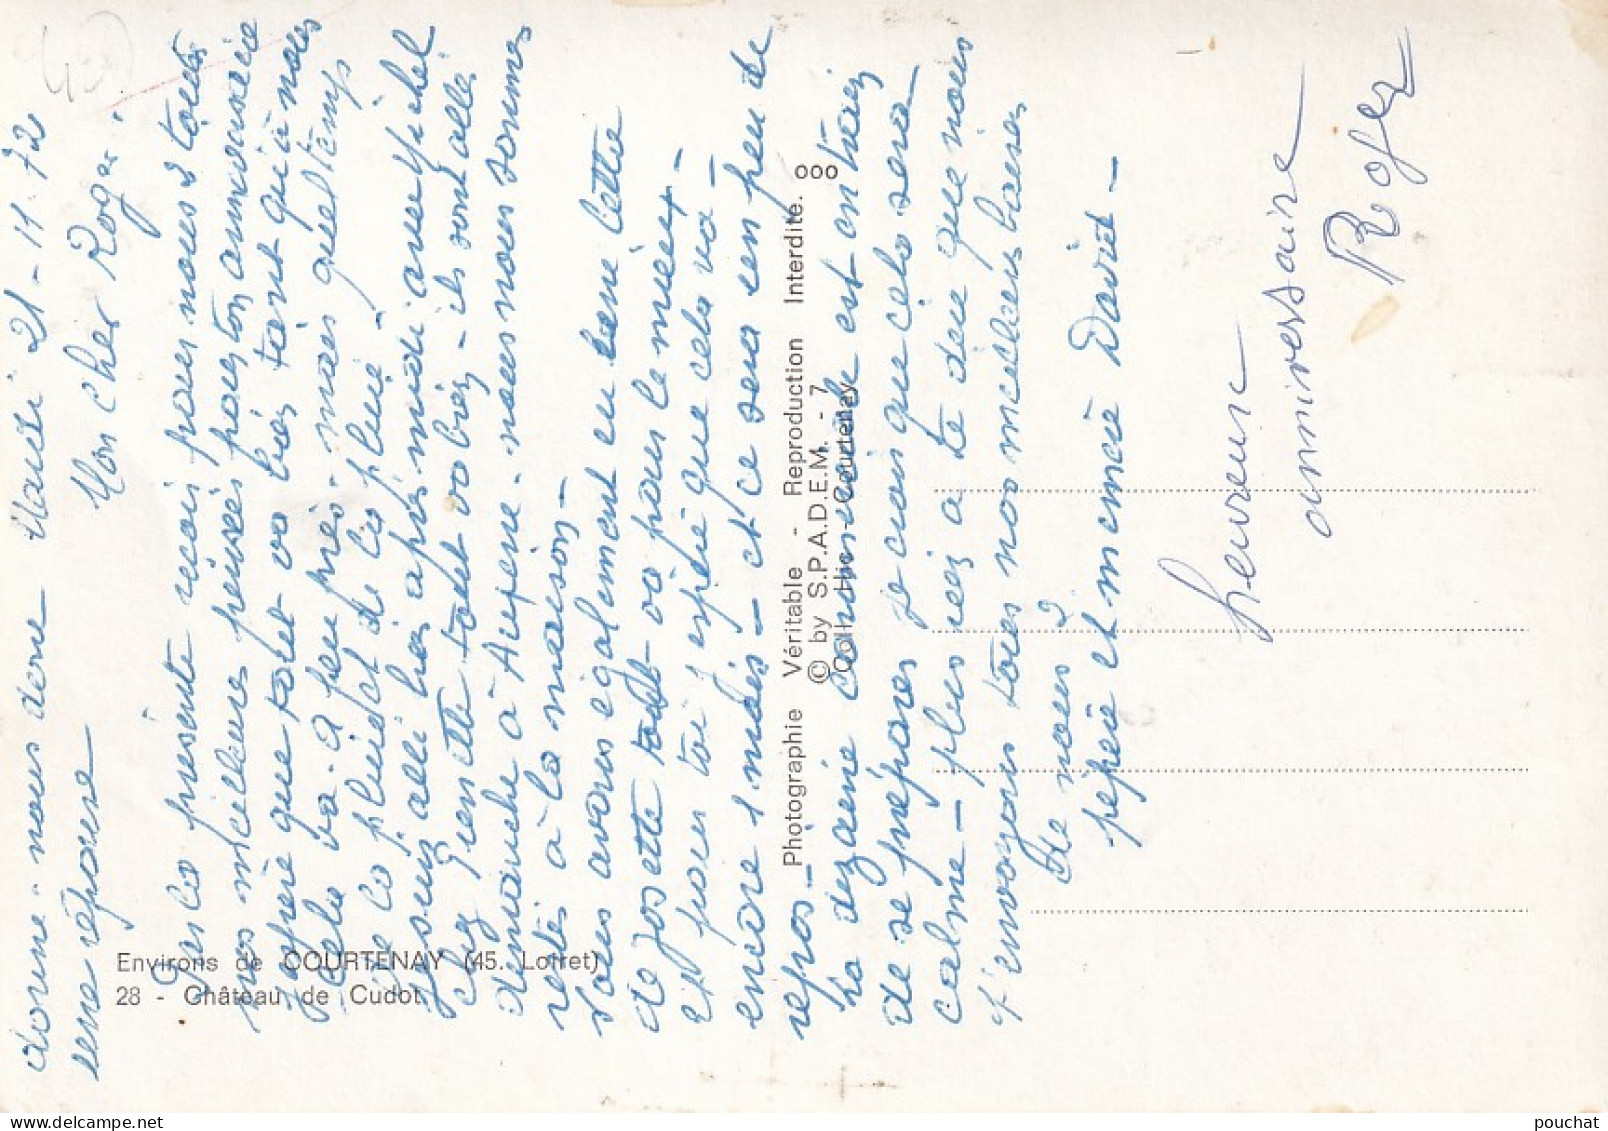 Mardi 21-11-72
Mon cher Roger.
Par la présente reçois pour nous 2 toutes
nos meilleures pensées pour ton anniversaire
J'espère que tout va très tant qu'à nous
cela va. à peu près. mais quel temps
de la pluie et de la pluie
Je suis allé la après midi avec Michel
chez tout va bien - ils sont allé
dimanche à Auxerre. nous nous sommes
resté à la maison -
nous avons également eu une lettre
de Josette tout va pour le mieux -
et pour toi j'espère que cela va -
encore 1 mois - et ce sera un peu de
repos -
la dizaine commerciale est en train
de se préparer je crois que cela sera
calme - plus rien a te dire que nous
t'envoyons tous nos meilleurs baisers
de nous 2
pépère et mémère David -
donne-nous donc
une réponse
heureux
anniversaire
Roger
Environs de COURTENAY (45. Loiret)
28 - Château de Cudot.
Photographie Véritable - Reproduction Interdite.
© by S.P.A.D.E.M. - 7
Coll. Courtenay
pouchat